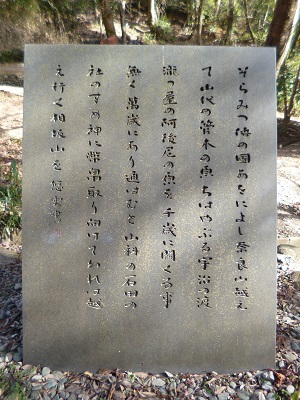 そらみつ倭の國あをによし奈良山越え
て山代の管木の原ちはやぶる宇治の渡
瀧つ屋の阿後尼の原を千歳に闕くる事
無く萬歳にあり通はむと山科の石田の
社のすめ神に幣帛取り向けてわれは越
え行く相坂山を